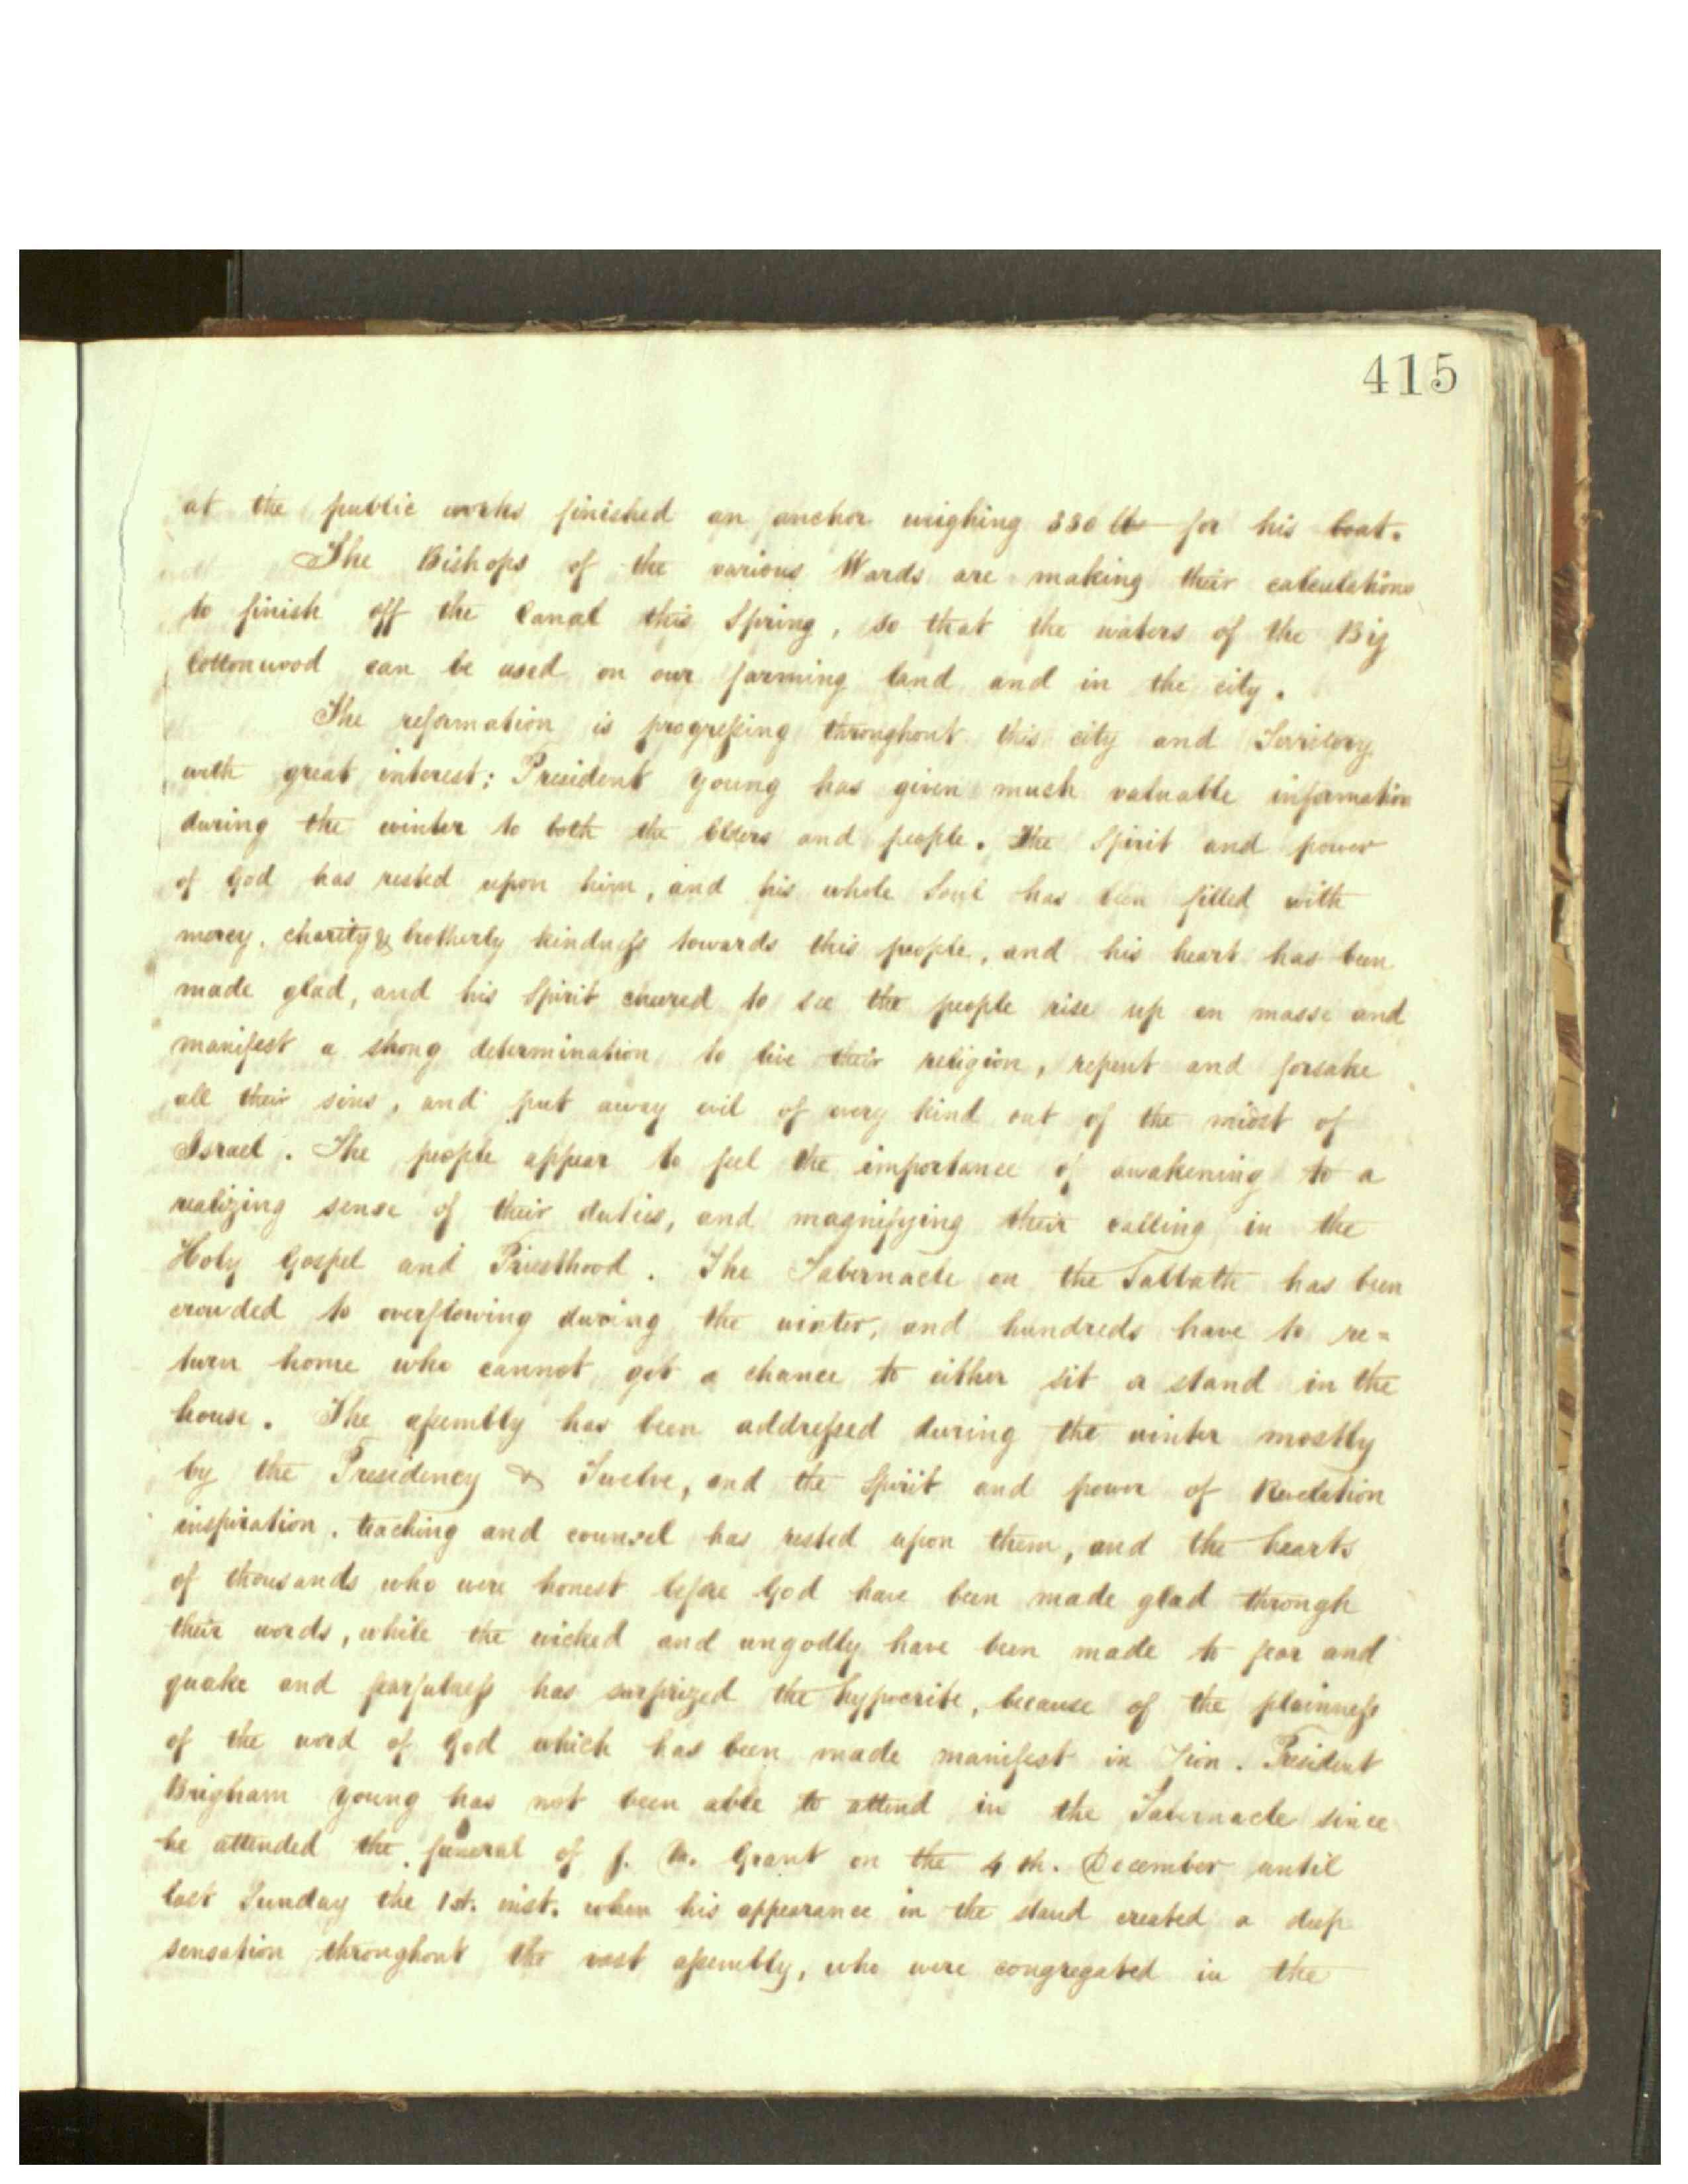 415
at the public works finished an anchor weighing 330 lb for his boat.
The Bishops of the various Wards are making their calculations
to finish off the Canal this Spring, so that the waters of the Big
Cottonwood can be used on our farming land and in the city.
The reformation is progressing throughout this city and Territory
with great interest: President Young has given much valuable information
during the winter to both the Elders and people. The Spirit and power
of God has rested upon him, and his whole Soul has been filled with
mercy, charity & brotherly kindness towards this people, and his heart has been
made glad, and his Spirit cheered to see the people rise up en masse and
manifest a strong determination to live their religion, repent and forsake
all their sins, and put away evil of every kind out of the midst of
Israel. The people appear to feel the importance of awakening to a
realizing sense of their duties, and magnifying their calling in the
Holy Gospel and Priesthood. The Tabernacle on the Sabbath has been
crowded to overflowing during the winter, and hundreds have to re=
turn home who cannot get a chance to either sit or stand in the
house. The assembly has been addressed during the winter mostly
by the Presidency & Twelve, and the Spirit and power of Revelation
inspiration, teaching and counsel has rested upon them, and the hearts
of thousands who were honest before God have been made glad through
their words, while the wicked and ungodly have been made to fear and
quake and fearfulness has surprized the hypocrite, because of the plainness
of the word of God which has been made manifest in Zion. President
Brigham Young has not been able to attend in the Tabernacle since
he attended the funeral of J. M. Grant on the 4th. December until
last Sunday the 1st. inst. when his appearance in the stand created a deep
sensation throughout the vast assembly, who were congregated in the